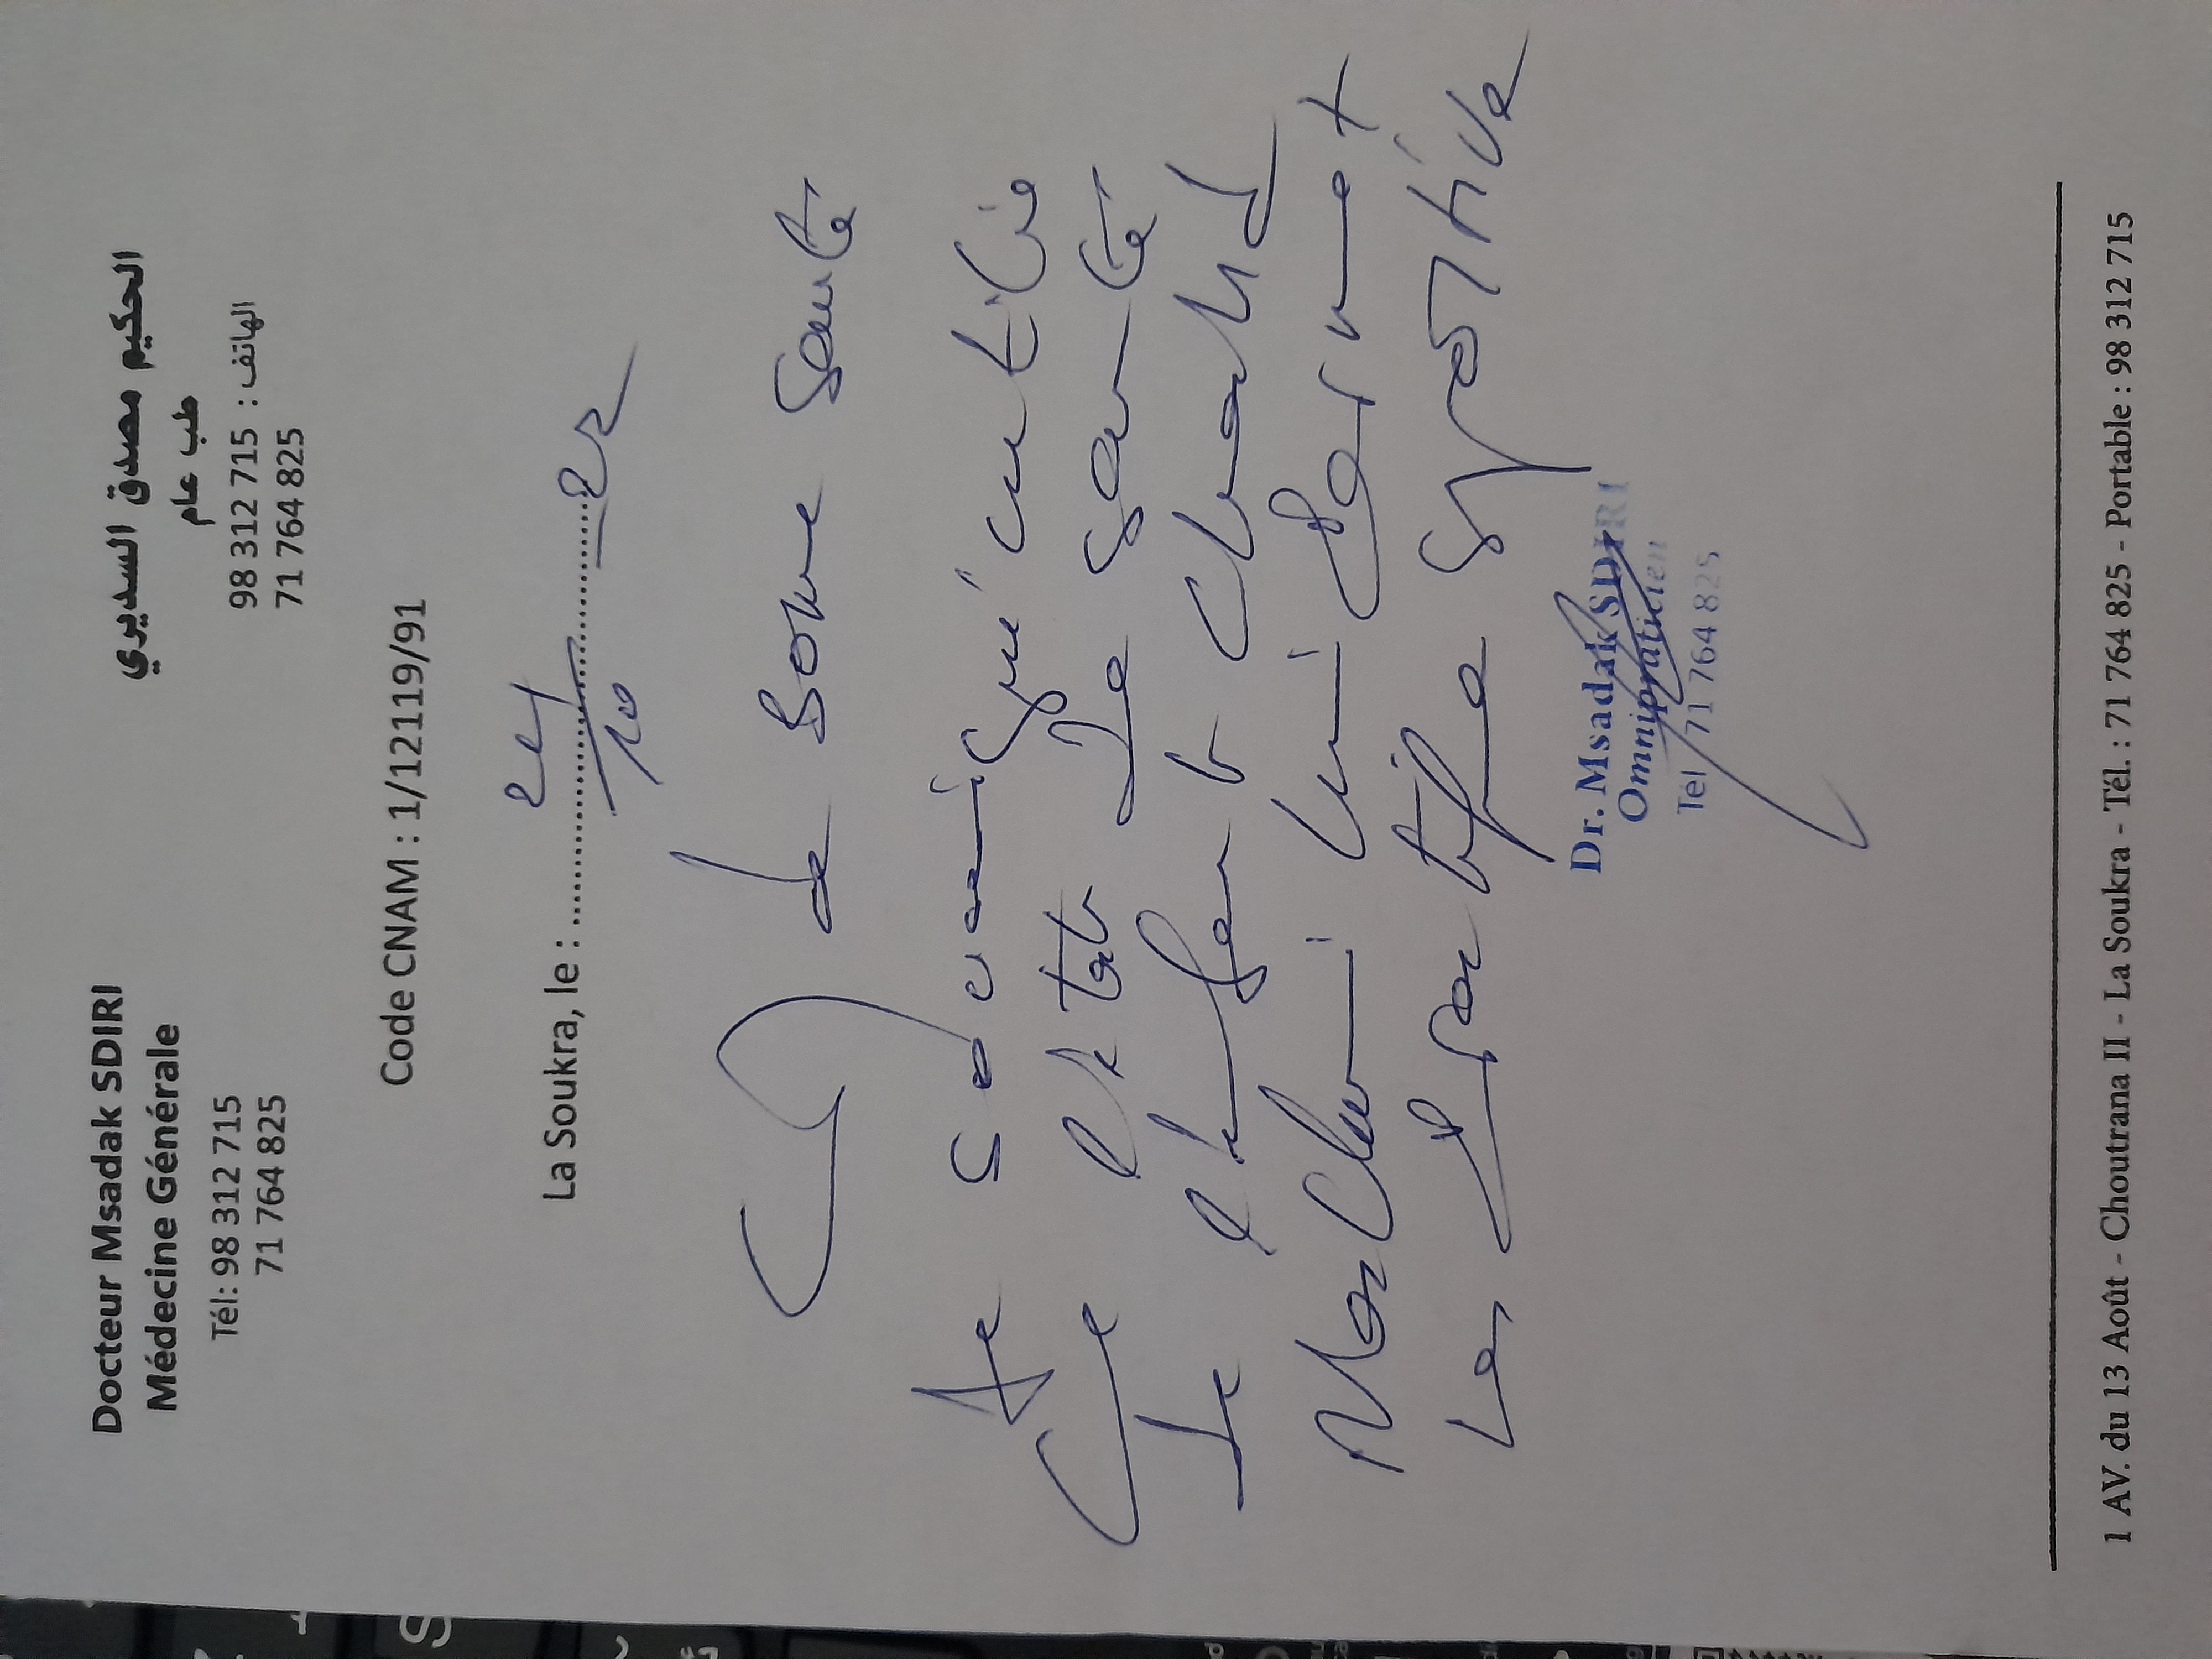 Docteur Msadak SDIRI
Médecine Générale
Tél: 98 312 715
71 764 825
الحكيم مصدق السديري
طب عام
الهاتف : 98 312 715
71 764 825
Code CNAM : 1/12119/91
La Soukra, le : 24/10 22
C de Bonne Santé
Je soussigné certifie
que l'état de santé
de l'enfant
lui permet
la pratique sportive
Dr. Msadak SDIRI
Omnipraticien
Tel 71 764 825
1 AV. du 13 Août - Choutrana II - La Soukra - Tél. : 71 764 825 - Portable : 98 312 715